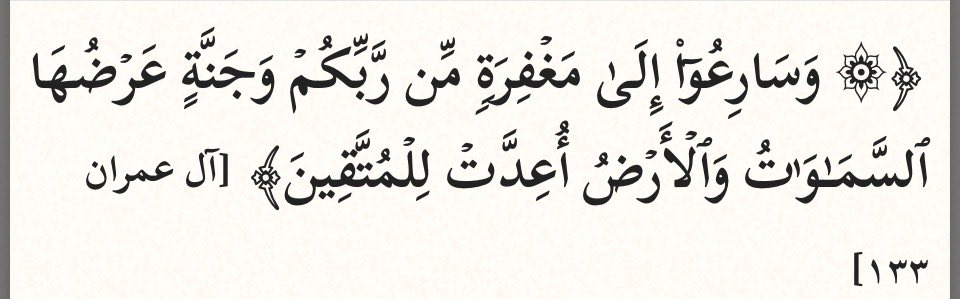 ﴿۞ وَسَارِعُوٓا۟ إِلَىٰ مَغْفِرَةٍ مِّن رَّبِّكُمْ وَجَنَّةٍ عَرْضُهَا
ٱلسَّمَـٰوَٰتُ وَٱلْأَرْضُ أُعِدَّتْ لِلْمُتَّقِينَ﴾ [آل عمران
١٣٣]